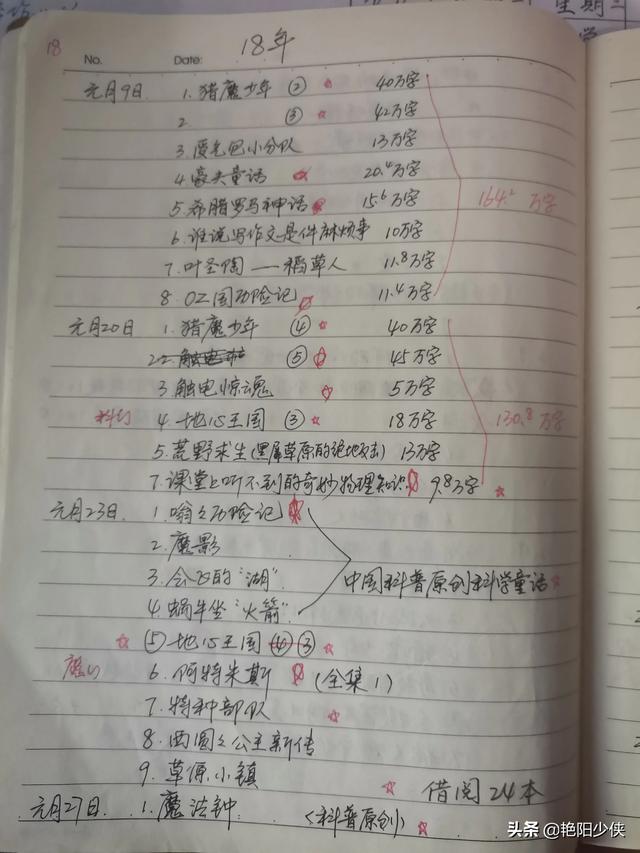 星期三
18
No.
Date:
18年
元月9日 1. 猎魔少年 ② 40万字
2 ③ 42万字
3. 废毛包小分队 13万字
4. 豪夫童话 20.4万字
5. 希腊罗马神话 15.6万字
164.2万字
6. 谁说写作文是件麻烦事 10万字
7. 叶圣陶——稻草人 11.8万字
8. OZ国历险记 11.4万字
元月20日 1. 猎魔少年 ④ 40万字
⑤ 45万字
3. 触电惊魂 5万字
科幻 4. 地心王国 ③ 18万字
130.8万字
5. 荒野求生(黑犀草原的绝地反击) 13万字
7. 课堂上听不到的奇妙物理知识 9.8万字
元月23日 1. 嗡嗡历险记
2. 魔影
3. 会飞的"湖"
中国科普原创科学童话
4. 蜗牛坐"火箭"
⑤ 地心王国 ④ ③
魔幻 6. 阿特米斯 (全集1)
7. 特种部队
8. 西图之公主新传
9. 草原小镇
借阅24本
元月27日 1. 魔法钟 <科普原创>
头条 @艳阳少侠